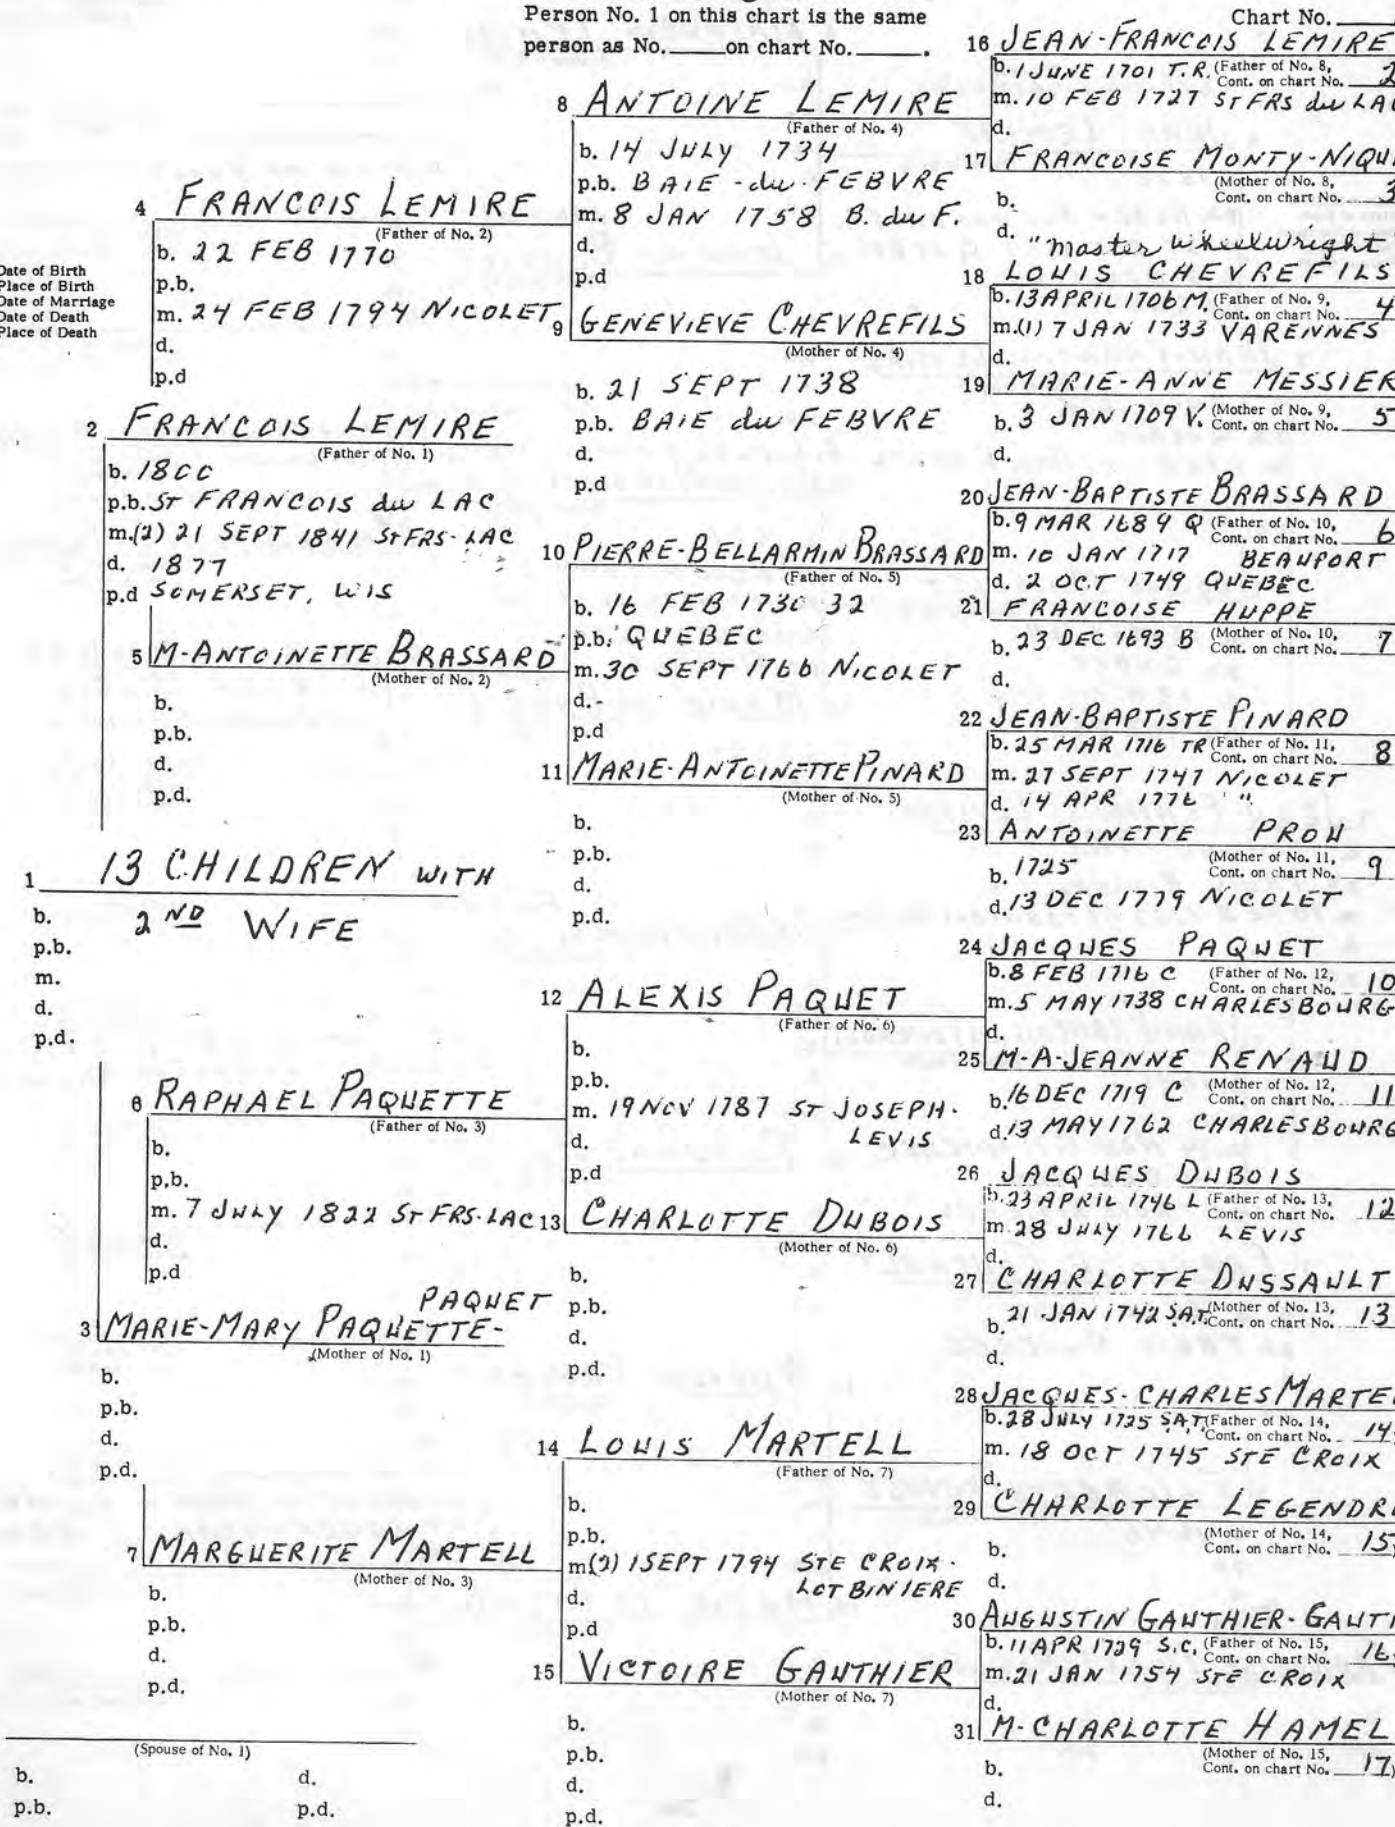 Person No. 1 on this chart is the same
person as No.____on chart No.____.
Chart No.
Date of Birth
Place of Birth
Date of Marriage
Date of Death
Place of Death
1 13 CHILDREN WITH
2ND WIFE
b.
p.b.
m.
d.
p.d.
2 FRANCOIS LEMIRE
(Father of No. 1)
b. 1800
p.b. ST FRANCOIS du LAC
m.(2) 21 SEPT 1841 ST FRS-LAC
d. 1877
p.d SOMERSET, WIS
PAQUET
3 MARIE-MARY PAQUETTE-
(Mother of No. 1)
b.
p.b.
d.
p.d.
4 FRANCOIS LEMIRE
(Father of No. 2)
b. 22 FEB 1770
p.b.
m. 24 FEB 1794 NICOLET
d.
p.d
5 M-ANTOINETTE BRASSARD
(Mother of No. 2)
b.
p.b.
d.
p.d.
6 RAPHAEL PAQUETTE
(Father of No. 3)
b.
p.b.
m. 7 JULY 1822 ST FRS-LAC
d.
p.d
7 MARGUERITE MARTELL
(Mother of No. 3)
b.
p.b.
d.
p.d.
(Spouse of No. 1)
b.
d.
p.b.
p.d.
8 ANTOINE LEMIRE
(Father of No. 4)
b. 14 JULY 1734
p.b. BAIE-du-FEBVRE
m. 8 JAN 1758 B. du F.
d.
p.d
9 GENEVIEVE CHEVREFILS
(Mother of No. 4)
b. 21 SEPT 1738
p.b. BAIE du FEBVRE
d.
p.d
10 PIERRE-BELLARMIN BRASSARD
(Father of No. 5)
b. 16 FEB 1730 32
p.b. QUEBEC
m. 30 SEPT 1766 NICOLET
d.
p.d
11 MARIE-ANTOINETTE PINARD
(Mother of No. 5)
b.
p.b.
d.
p.d.
12 ALEXIS PAQUET
(Father of No. 6)
b.
p.b.
m. 19 NOV 1787 ST JOSEPH-
LEVIS
d.
p.d
13 CHARLOTTE DUBOIS
(Mother of No. 6)
b.
p.b.
d.
p.d.
14 LOUIS MARTELL
(Father of No. 7)
b.
p.b.
m(2) 1 SEPT 1794 STE CROIX-
LOTBINIERE
d.
p.d
15 VICTOIRE GAUTHIER
(Mother of No. 7)
b.
p.b.
d.
p.d.
16 JEAN-FRANCOIS LEMIRE
b. 1 JUNE 1701 T.R. (Father of No. 8,
Cont. on chart No. 2
m. 10 FEB 1727 ST FRS du LAC
d.
17 FRANCOISE MONTY-
(Mother of No. 8,
Cont. on chart No. 3
b.
d.
"Master Wheelwright"
18 LOUIS CHEVREFILS
b. 13 APRIL 1706 M. (Father of No. 9,
Cont. on chart No. 4
m.(1) 7 JAN 1733 VARENNES
d.
19 MARIE-ANNE MESSIER
b. 3 JAN 1709 V. (Mother of No. 9,
Cont. on chart No. 5
d.
20 JEAN-BAPTISTE BRASSARD
b. 9 MAR 1689 Q (Father of No. 10,
Cont. on chart No. 6
m. 10 JAN 1717 BEAUPORT
d. 2 OCT 1749 QUEBEC
21 FRANCOISE HUPPE
b. 23 DEC 1693 B (Mother of No. 10,
Cont. on chart No. 7
d.
22 JEAN-BAPTISTE PINARD
b. 25 MAR 1716 TR (Father of No. 11,
Cont. on chart No. 8
m. 27 SEPT 1747 NICOLET
d. 14 APR 1776 " "
23 ANTOINETTE PROU
b. 1725 (Mother of No. 11,
Cont. on chart No. 9
d. 13 DEC 1779 NICOLET
24 JACQUES PAQUET
b. 8 FEB 1716 C (Father of No. 12,
Cont. on chart No. 10
m. 5 MAY 1738 CHARLESBOURG
d.
25 M-A-JEANNE RENAUD
b. 16 DEC 1719 C (Mother of No. 12,
Cont. on chart No. 11
d. 13 MAY 1762 CHARLESBOURG
26 JACQUES DUBOIS
b. 23 APRIL 1746 L (Father of No. 13,
Cont. on chart No. 12
m. 28 JULY 1766 LEVIS
d.
27 CHARLOTTE DUSSAULT
b. 21 JAN 1742 S.A.T. (Mother of No. 13,
Cont. on chart No. 13
d.
28 JACQUES-CHARLES MARTE
b. 28 JULY 1725 S.A.T. (Father of No. 14,
Cont. on chart No. 14
m. 18 OCT 1745 STE CROIX
d.
29 CHARLOTTE LEGENDRE
(Mother of No. 14,
Cont. on chart No. 15
b.
d.
30 AUGUSTIN GAUTHIER-GAUTI
b. 11 APR 1729 S.C. (Father of No. 15,
Cont. on chart No. 16
m. 21 JAN 1754 STE CROIX
d.
31 M-CHARLOTTE HAMEL
(Mother of No. 15,
Cont. on chart No. 17)
b.
d.